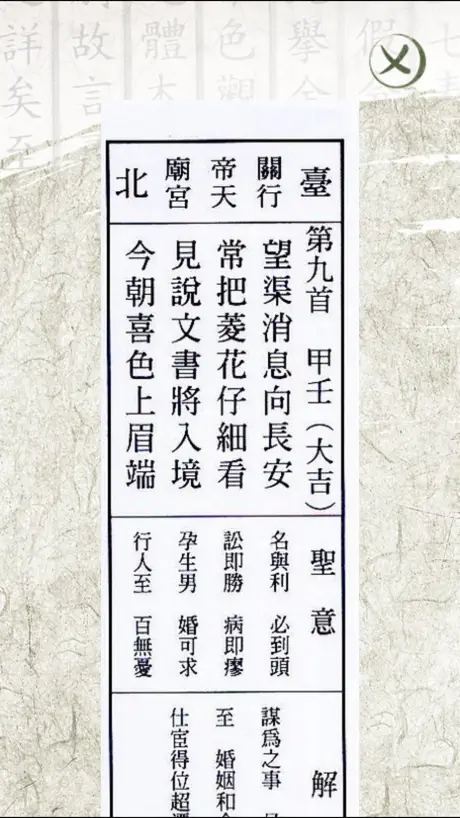 七
假
舉全
色觀
體本
故言
詳矣至
臺
關帝廟
行天宮
北
第九首 甲壬（大吉）
望渠消息向長安
常把菱花仔細看
見說文書將入境
今朝喜色上眉端
聖意
名與利 必到頭
訟即勝 病即瘳
孕生男 婚可求
行人至 百無憂
解
謀爲之事
至 婚姻和
仕宦得位超